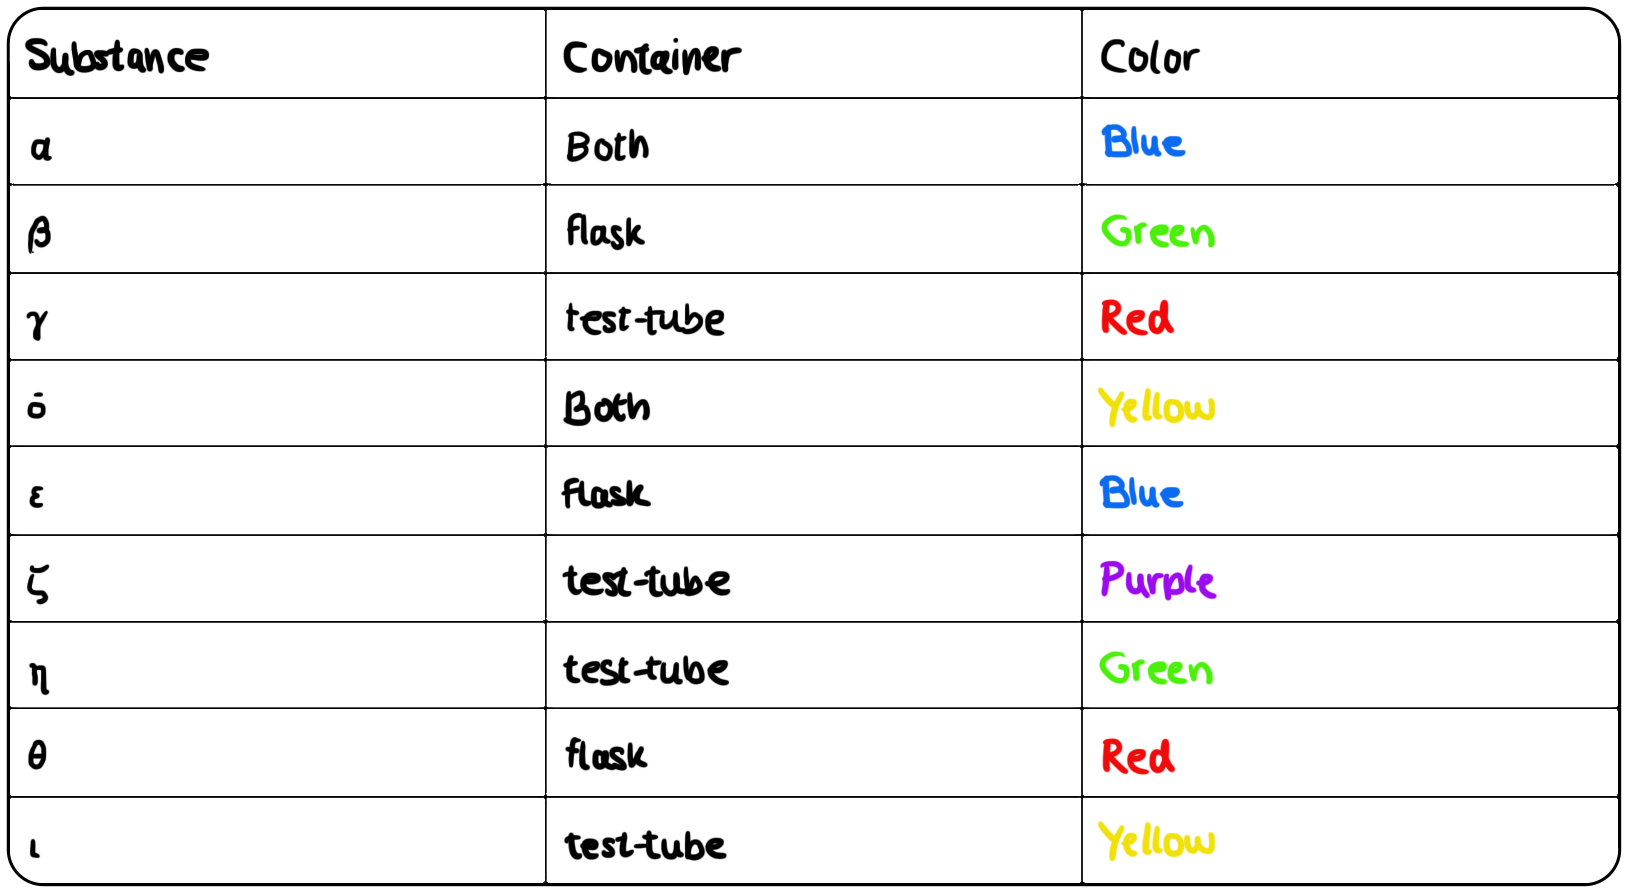 Substance Container Color
α Both Blue
β flask Green
γ test-tube Red
ȯ Both Yellow
ε flask Blue
ζ test-tube Purple
η test-tube Green
θ flask Red
ι test-tube Yellow